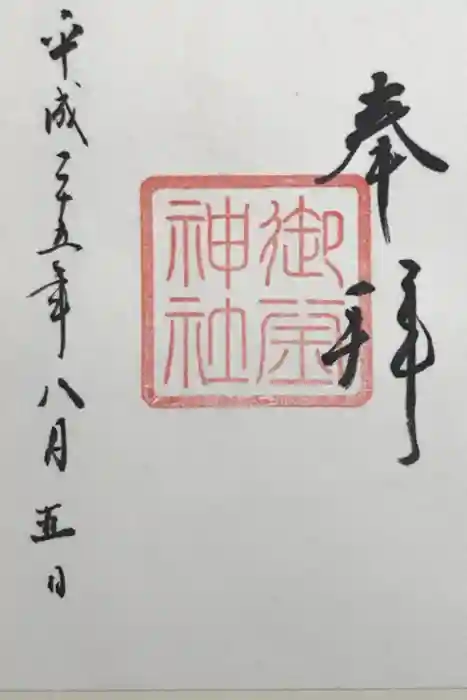 奉拝
御霊神社
平成二十五年八月五日